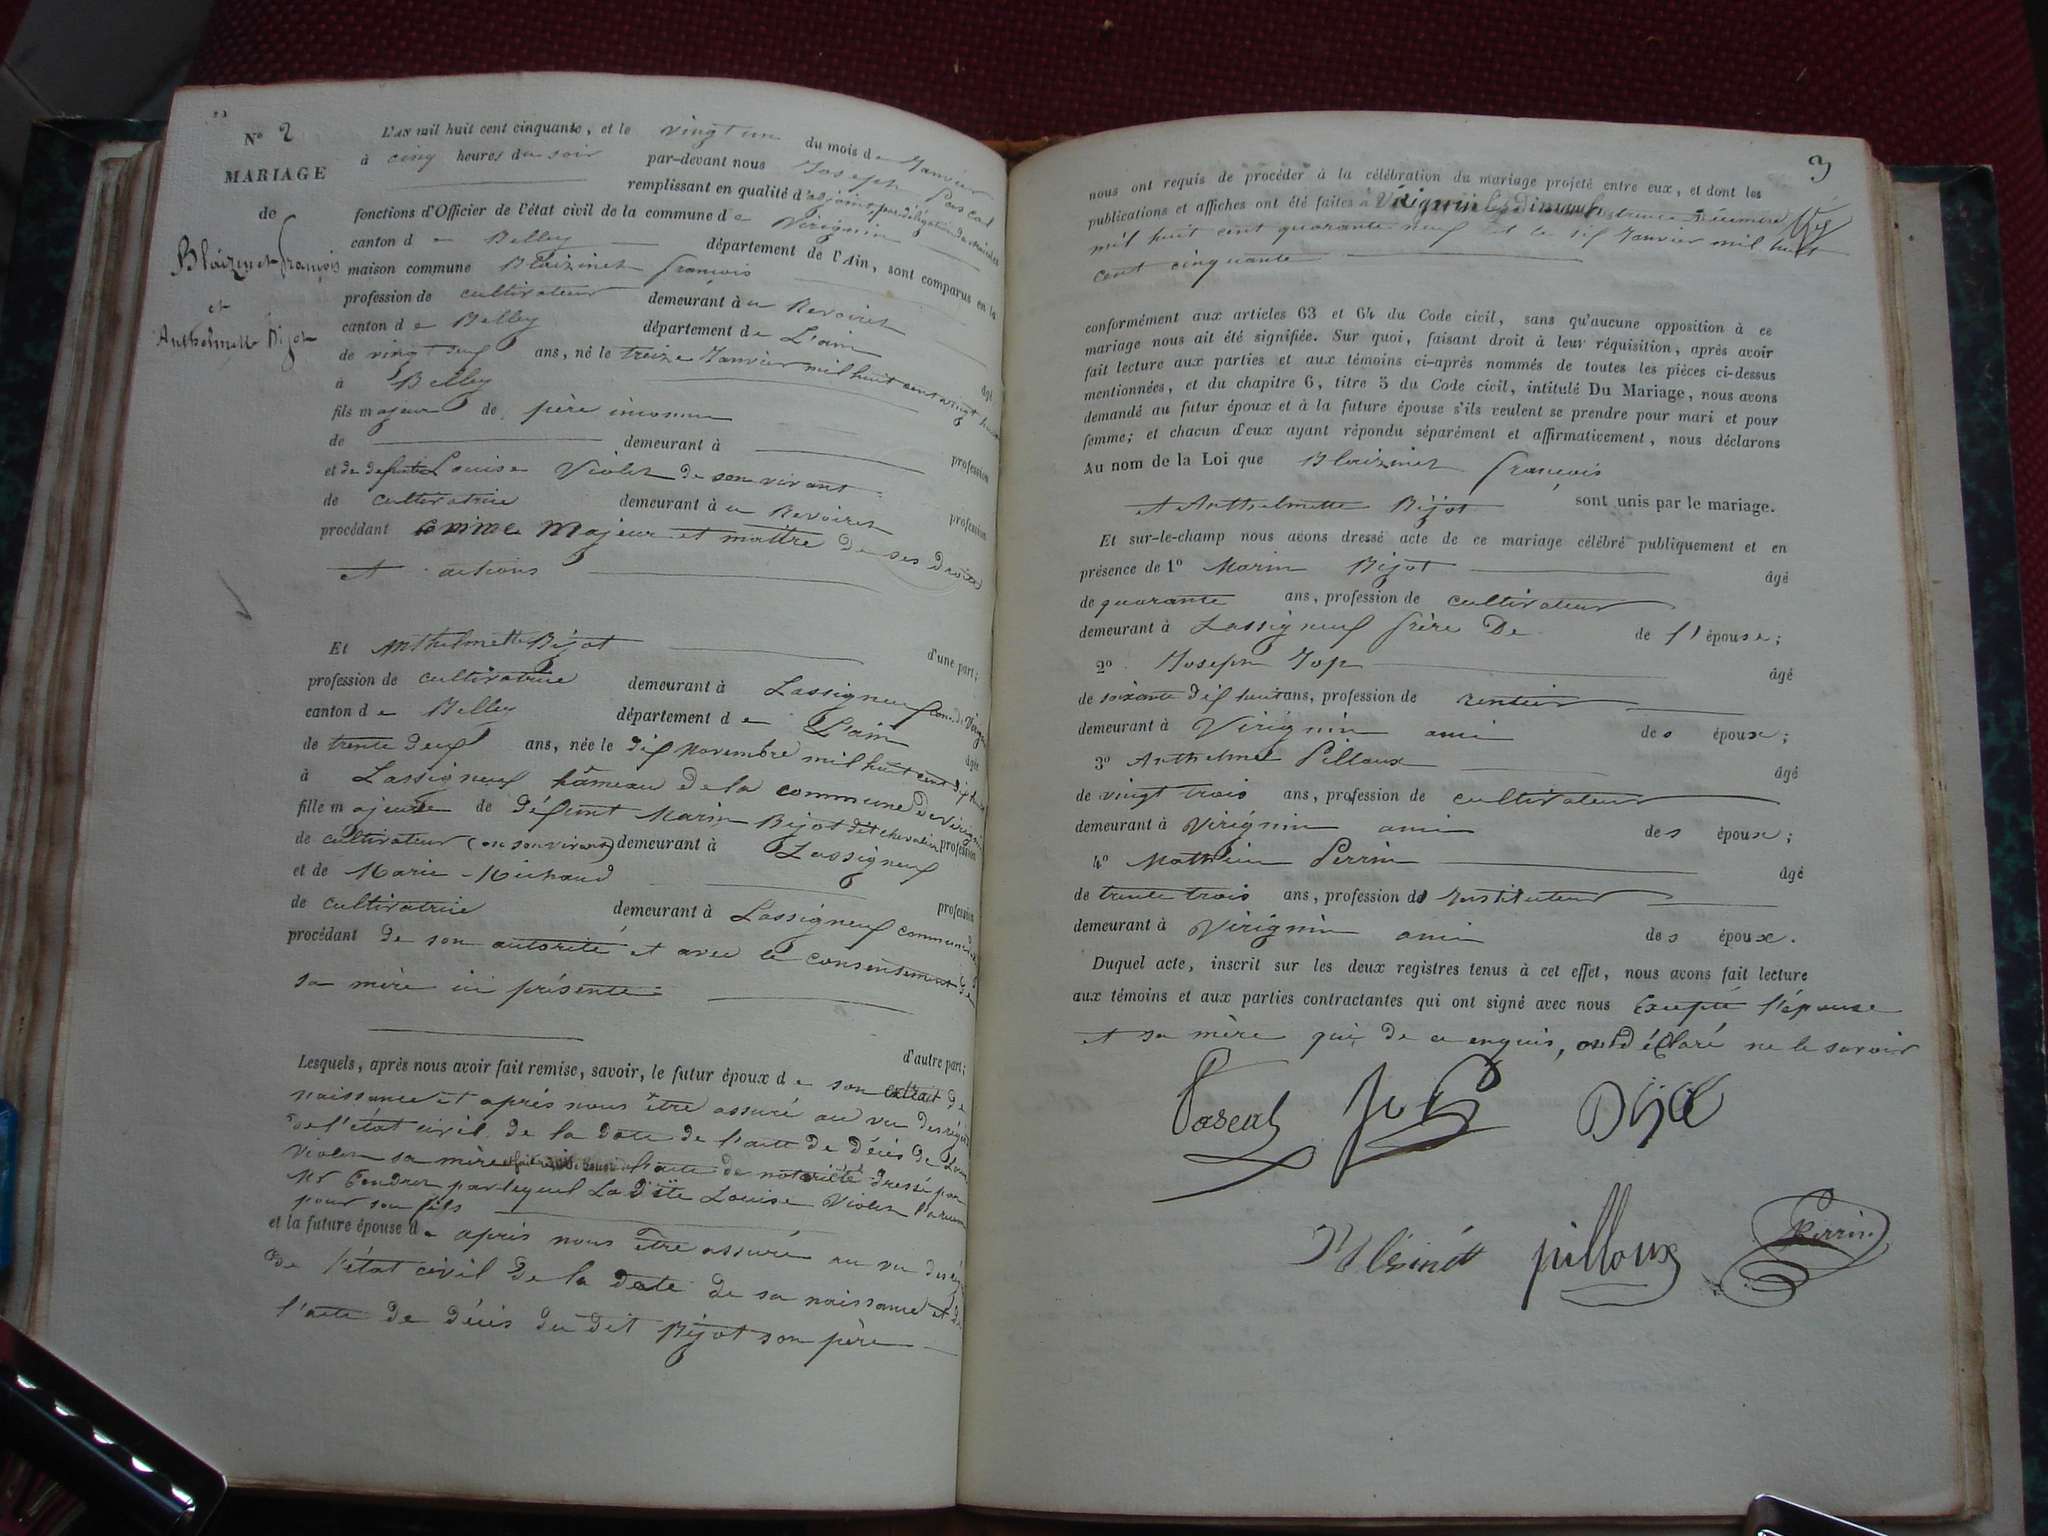 N° 2
MARIAGE
de
Blaizinet françois
et
Anthelmette Bijot
L'AN mil huit cent cinquante, et le vingt un du mois de Janvier
à cinq heures du soir par-devant nous Joseph Pascal
remplissant en qualité d'adjoint, par délégation du Maire les
fonctions d'Officier de l'état civil de la commune de Virignin
canton de Belley département de l'Ain, sont comparus en la
maison commune Blaizinet françois
profession de cultivateur demeurant à Revoiret
canton de Belley département de L'ain âgé
de vingt deux ans, né le treize Janvier mil huit cent vingt huit
à Belley
fils majeur de père inconnu profession
de demeurant à
et de défunte Louise Violet de son vivant profession
de cultivatrice demeurant à Revoiret
procédant comme Majeur et maître de ses droits
et actions
d'une part;
Et Anthelmette Bijot
profession de cultivatrice demeurant à Lassignieux Com. de Virignin
canton de Belley département de L'ain âgée
de trente deux ans, née le dix Novembre mil huit cent dix huit
à Lassignieux hâmeau de la commune de Virignin
fille majeure de défunt Marin Bijot dit chevalier profession
de cultivateur (en son vivant) demeurant à Lassignieux
et de Marie Michaud profession
de cultivatrice demeurant à Lassignieux commune
procédant de son autorité et avec le consentement de
sa mère ici présente
d'autre part;
Lesquels, après nous avoir fait remise, savoir, le futur époux de son extrait de
naissance et après nous être assuré au vu des régistres
de l'état civil de la date de l'acte de décès de Louise
Violet sa mère l'acte de notoriété dressé par
Mr par lequel La dite Louise Violet
pour son fils
et la future épouse de après nous être assuré au vu des régistres
de l'état civil de la date de sa naissance et de
l'acte de décès du dit Bijot son père
3
nous ont requis de procéder à la célébration du mariage projeté entre eux, et dont les
publications et affiches ont été faites à Virignin les Dimanches trente Décembre
mil huit cent quarante neuf et le six Janvier mil huit
cent cinquante
conformément aux articles 63 et 64 du Code civil, sans qu'aucune opposition à ce
mariage nous ait été signifiée. Sur quoi, faisant droit à leur réquisition, après avoir
fait lecture aux parties et aux témoins ci-après nommés de toutes les pièces ci-dessus
mentionnées, et du chapitre 6, titre 5 du Code civil, intitulé Du Mariage, nous avons
demandé au futur époux et à la future épouse s'ils veulent se prendre pour mari et pour
femme; et chacun d'eux ayant répondu séparément et affirmativement, nous déclarons
Au nom de la Loi que Blaizinet françois
et Anthelmette Bijot sont unis par le mariage.
Et sur-le-champ nous avons dressé acte de ce mariage célébré publiquement et en
présence de 1° Marin Bijot âgé
de quarante ans, profession de cultivateur
demeurant à Lassignieux frère De de l'épouse;
2° Joseph Joly âgé
de soixante dix huit ans, profession de rentier
demeurant à Virignin ami des époux;
3° Anthelme Pilloux âgé
de vingt trois ans, profession de cultivateur
demeurant à Virignin ami des époux;
4° Mathieu Perrin âgé
de trente trois ans, profession de Instituteur
demeurant à Virignin ami des époux.
Duquel acte, inscrit sur les deux registres tenus à cet effet, nous avons fait lecture
aux témoins et aux parties contractantes qui ont signé avec nous Excepté l'épouse
et sa mère qui, de ce enquis, ont déclaré ne le savoir
Pascal
Bijot
pilloux Perrin